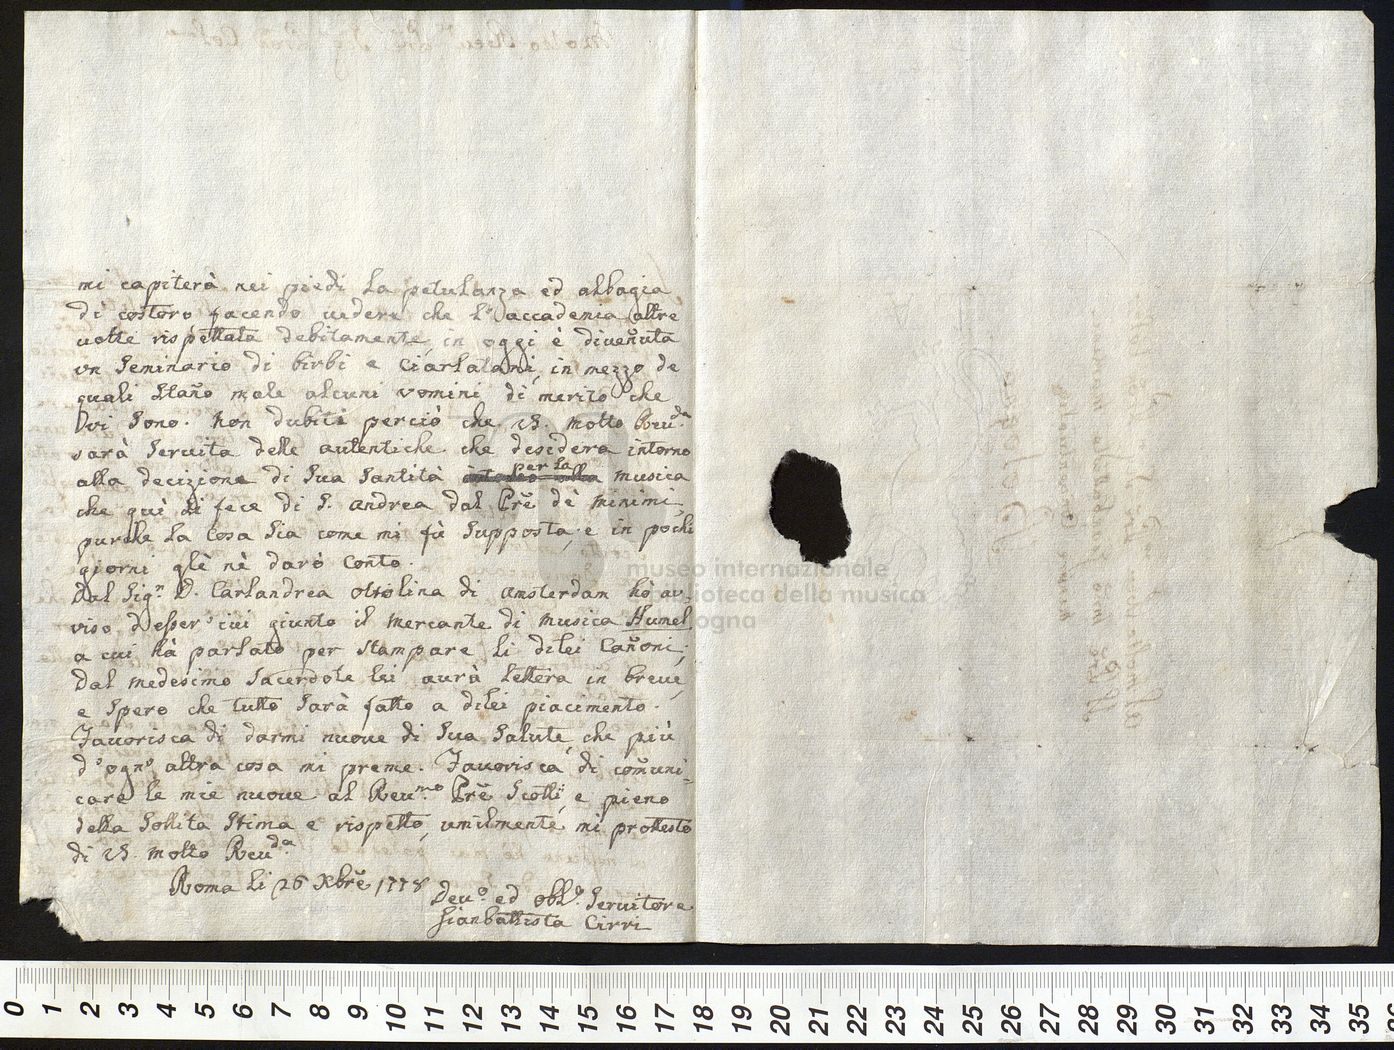 mi capiterà nei piedi la petulanza ed albagia
di costoro facendo vedere che l'accademia altre
volte rispettata debitamente, in oggi è divenuta
un Seminario di birbi e Ciarlatani, in mezzo de
quali Stano male alcuni uomini di merito, che
vi Sono. Non dubiti perciò che V.S. molto Reu.da
sarà Servita delle autentiche che desidera intorno
alla decizione di Sua Santità per la musica
che quì si fece di S. Andrea dal Prẽ de Minimi,
purche la Cosa Sia come mi fù Supposta; e in pochi
giorni glè nè darò Conto.
Dal Sig.r D. Carlandrea Oltolina di Amsterdam hò av-
viso d'esser ivi giunto il mercante di musica Humel
a cui hà parlato per Stampare li dilei Cañoni;
Dal medesimo Sacerdote lei aurà lettera in breue,
e Spero che tutto Sarà fatto a dilei piacimento.
Fauorisca di darmi nuoue di Sua Salute che più
d'ogn'altra cosa mi preme. Fauorisca di comuni-
care le mie nuoue al Reu.mo Prẽ Scotti, e pieno
della Sollita Stima e rispetto, umilmente mi protesto
di V.S. molto Reu.da
Roma li 26 Xbrẽ 1778
Deu.o ed obl.o Seruitore
Gianbattista Cirri
Bologna
museo internazionale
e biblioteca della musica
di bologna
0 1 2 3 4 5 6 7 8 9 10 11 12 13 14 15 16 17 18 19 20 21 22 23 24 25 26 27 28 29 30 31 32 33 34 35 36